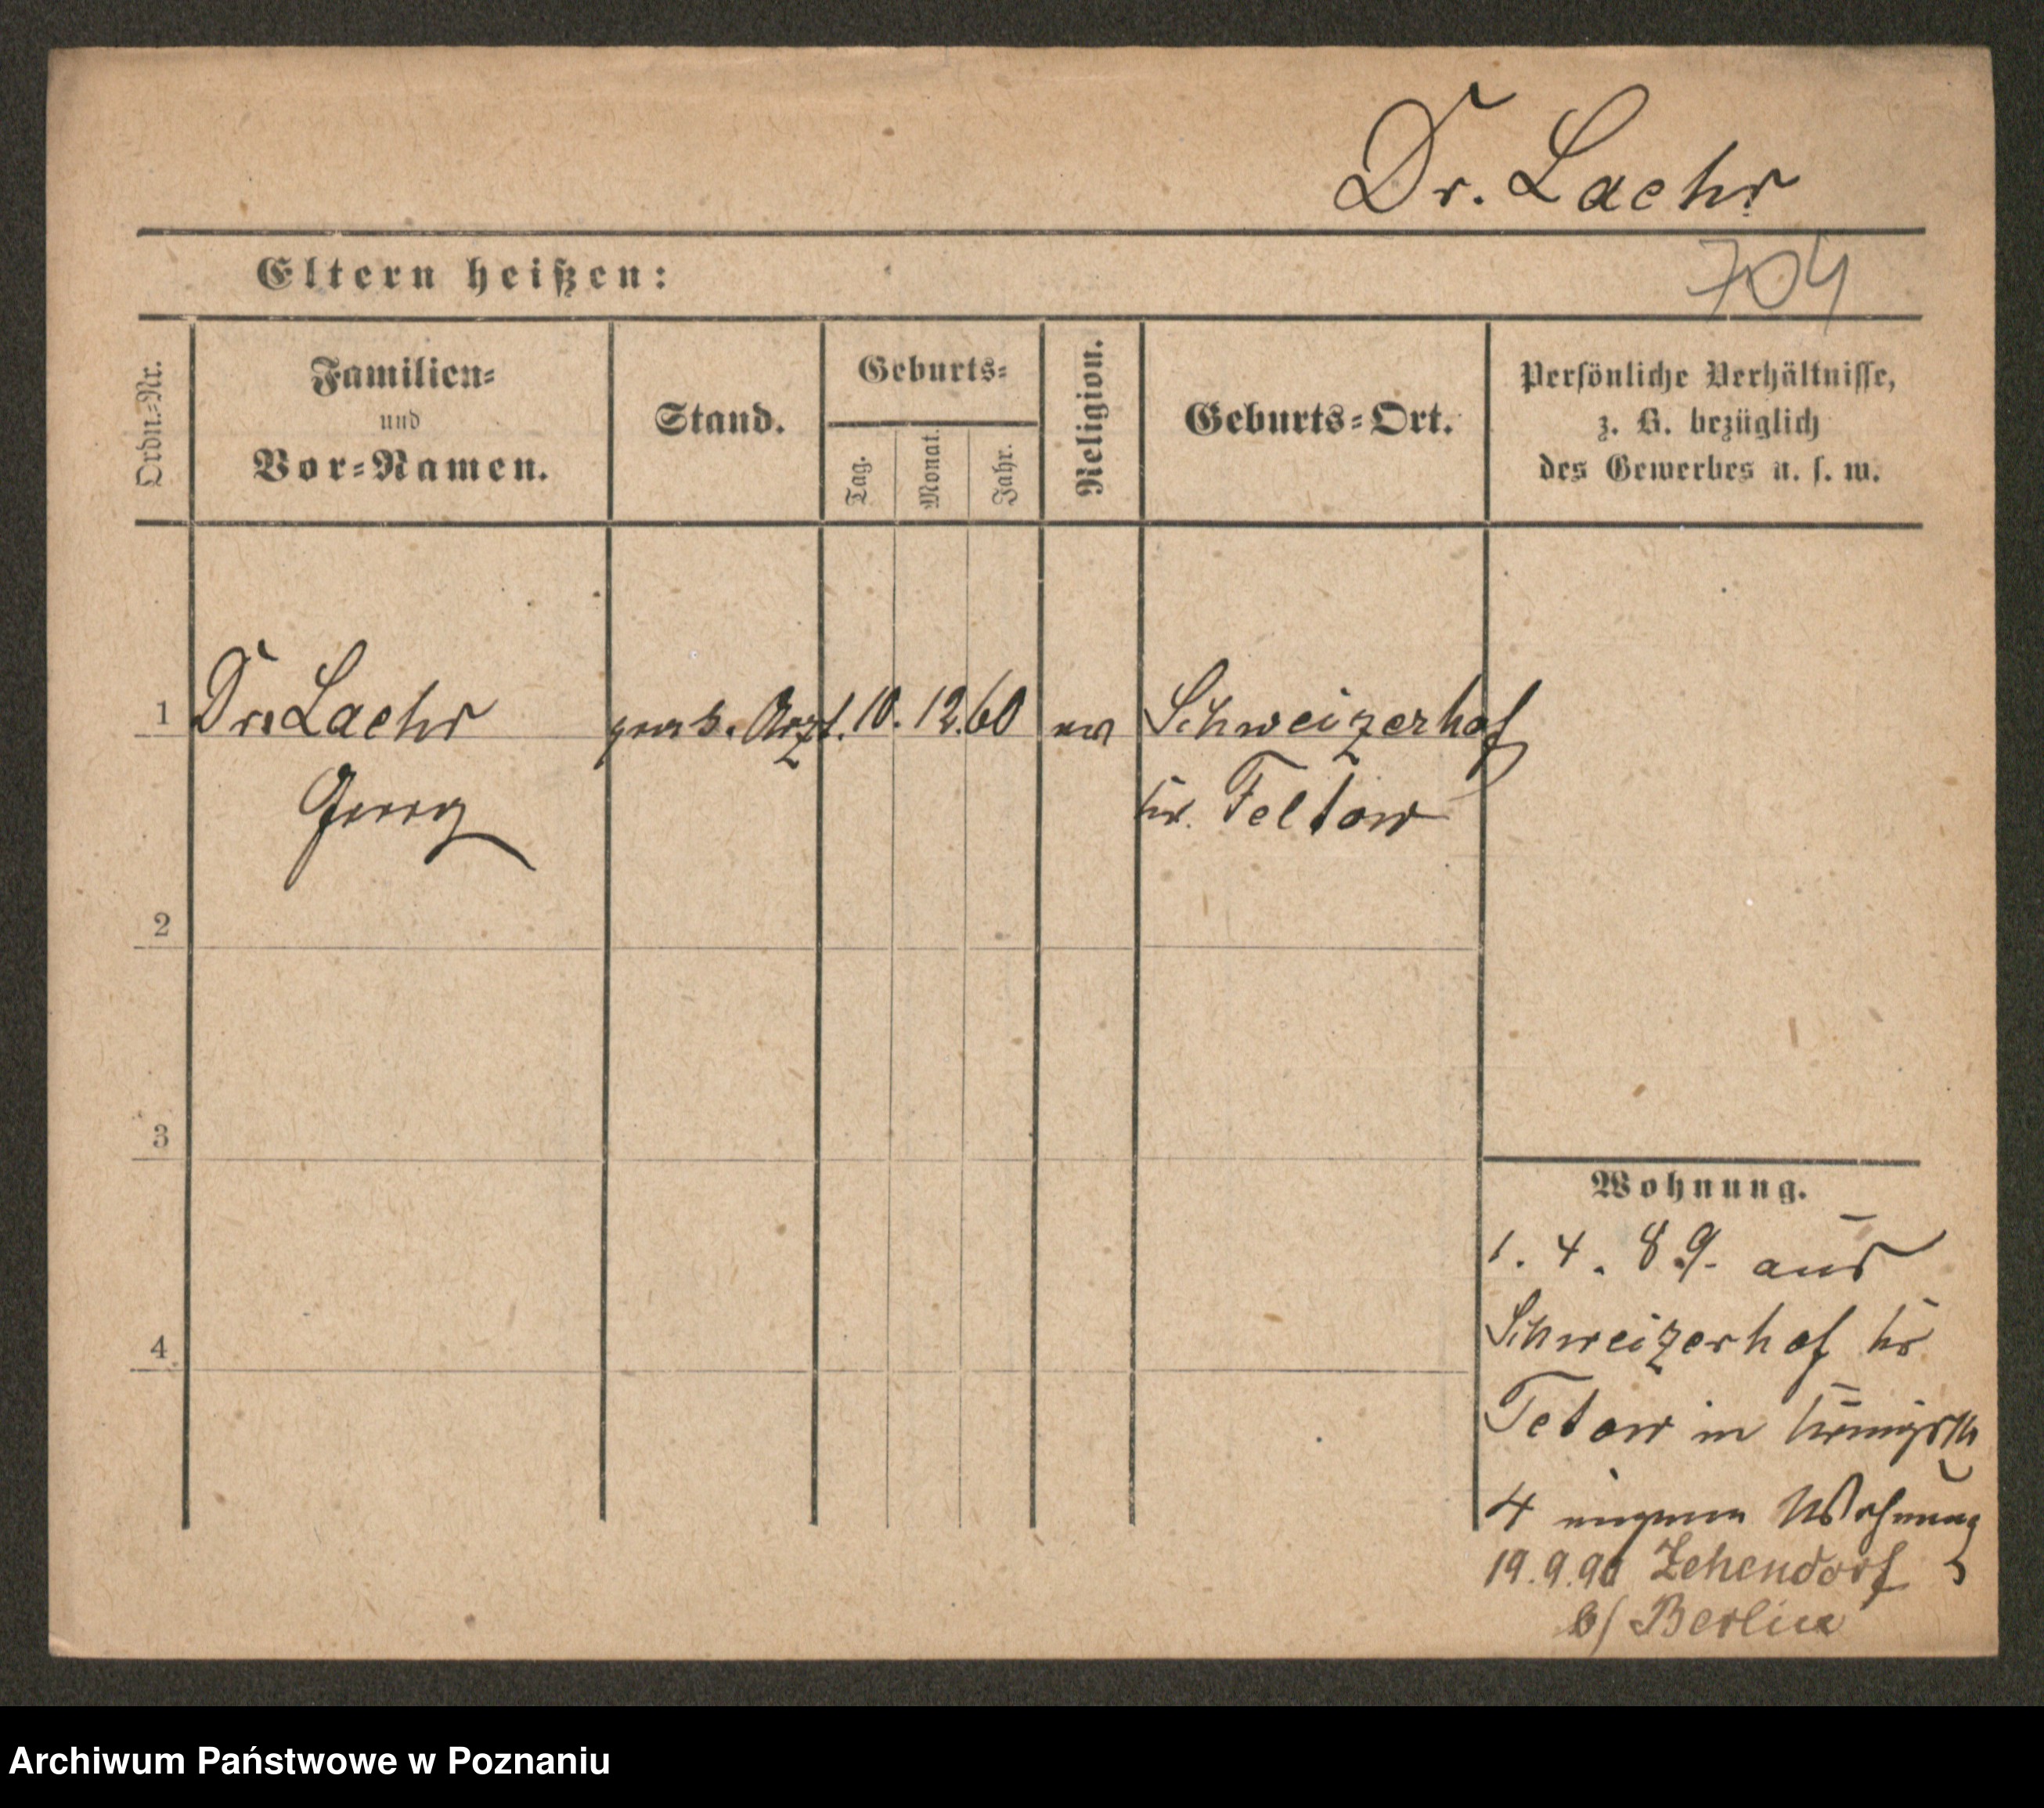 Dr. Laehr
704
Eltern heißen:
Ordn.-Nr.
Familien-
und
Vor-Namen.
Stand.
Geburts-
Tag.
Monat.
Jahr.
Religion.
Geburts-Ort.
Persönliche Verhältnisse,
z. B. bezüglich
des Gewerbes u. s. w.
1 Dr. Laehr prakt. Arzt. 10. 12. 60 ev Schweizerhof
Georg Kr. Teltow
2
3
4
Wohnung.
1. 4. 89. aus
Schweizerhof Kr
Tetow in Königstr
4 eigenen Wohnung
19.9.90 Zehendorf
b/ Berlin
Archiwum Państwowe w Poznaniu